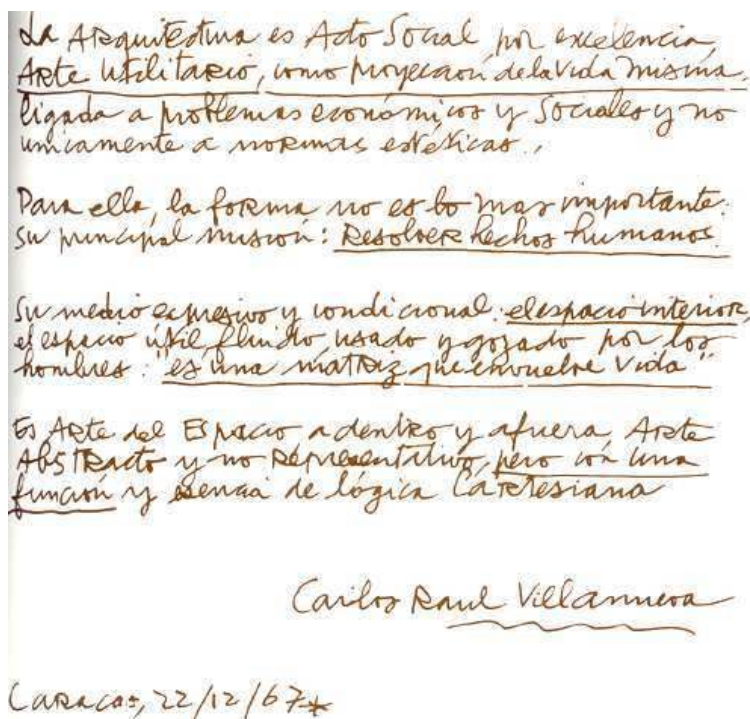 La Arquitectura es Acto Social por excelencia,
Arte Utilitario, como proyección de la Vida misma.
ligada a problemas económicos y Sociales y no
unicamente a normas estéticas.,
Para ella, la forma no es lo mas importante:
Su principal mision: Resolver hechos humanos.
Su medio expresivo y condicional: el espacio interior,
el espacio útil, fluido, usado y gozado por los
hombres: "es una matriz que envuelve Vida"
Es Arte del Espacio adentro y afuera, Arte
Abstracto y no Representativo, pero con una
función y esencia de lógica Cartesiana
Carlos Raul Villanueva
Caracas, 22/12/67*